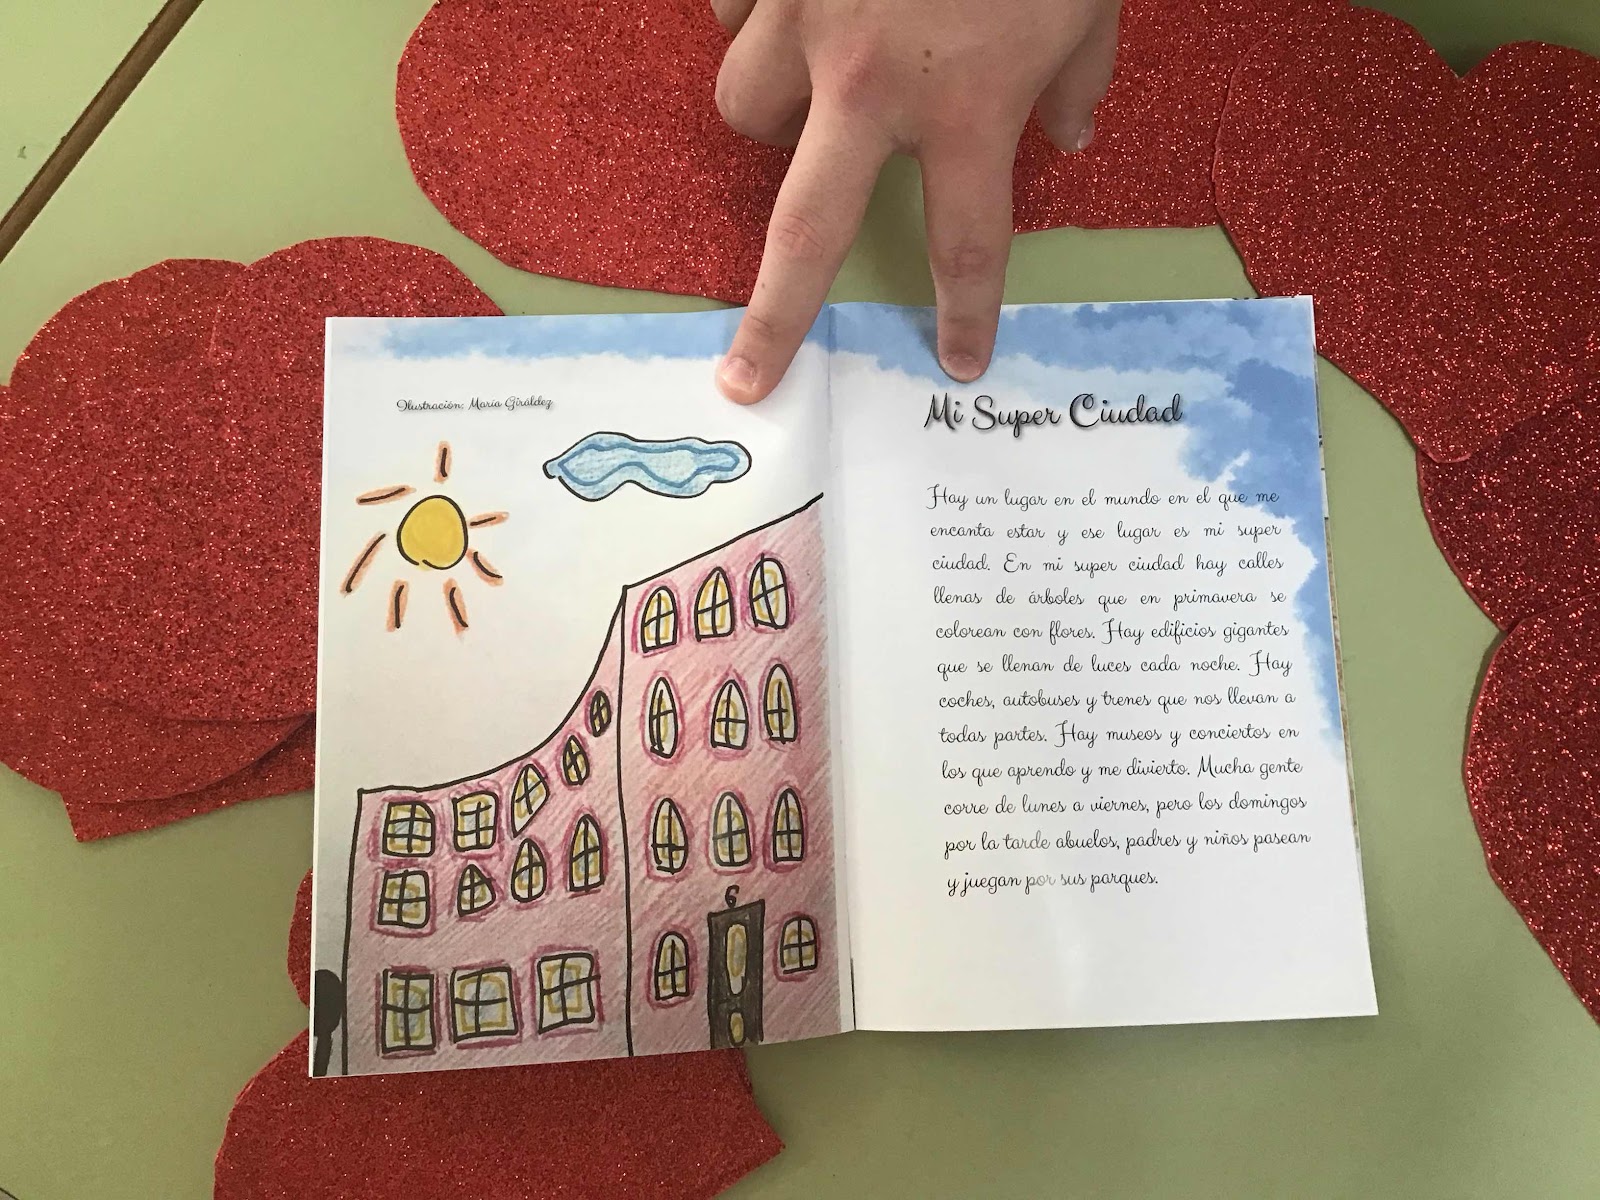 Ilustración: María Giráldez
6
Mi Super Ciudad
Hay un lugar en el mundo en el que me
encanta estar y ese lugar es mi super
ciudad. En mi super ciudad hay calles
llenas de árboles que en primavera se
colorean con flores. Hay edificios gigantes
que se llenan de luces cada noche. Hay
coches, autobuses y trenes que nos llevan a
todas partes. Hay museos y conciertos en
los que aprendo y me divierto. Mucha gente
corre de lunes a viernes, pero los domingos
por la tarde abuelos, padres y niños pasean
y juegan por sus parques.